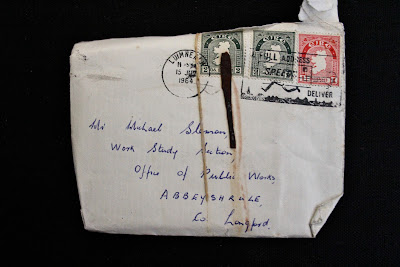 LUIMNEACH
15 JUN
1964
FULL ADDRESS
SPEEDS
DELIVERY
Mr Michael
Work Study Section,
Office of Public Works,
ABBEYSHRULE,
Co Longford.